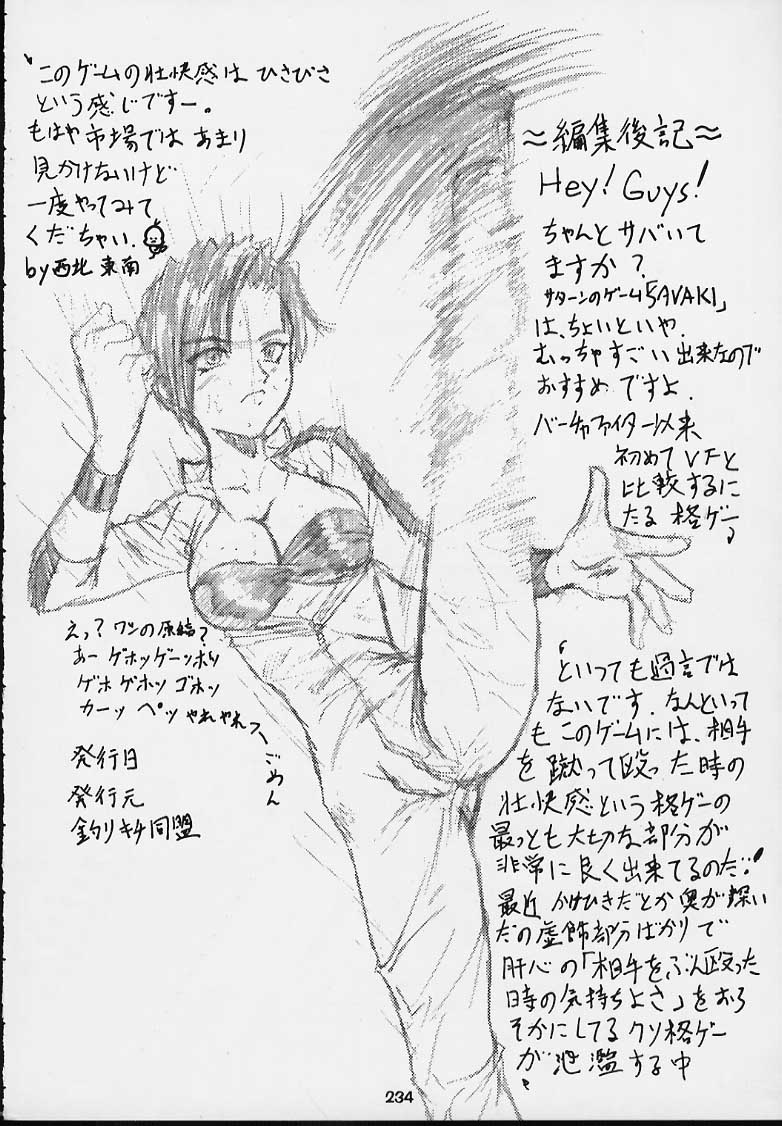 ≈編集後記≈
Hey! Guys!
ちゃんとサバいて
ますか?
サターンのゲーム「SAVAKI」
は、ちょいといや、
むっちゃすごい出来なので
おすすめですよ.
バーチャファイター以来
初めてVFと
比較するに
たる格ゲー
といっても過言では
ないです.なんといって
もこのゲームには、相手
を蹴って殴った時の
壮快感という格ゲーの
最っとも大切な部分が
非常に良く出来てるのだ!
最近 かけひきだとか奥が深い
だの虚飾部分ばかりで
肝心の「相手をぶん殴った
時の気持ちよさ」をおろ
そかにしてるクソ格ゲー
が氾濫する中
このゲームの壮快感はひさびさ
という感じですー。
もはや市場ではあまり
見かけないけど
一度やってみて
くだちゃい.
by西北東南
えっ?ワシの原稿?
あー ゲホッゲーッホッ
ゲホゲホッ ゴホッ
カーッ ペッ やれやれっ
ごめん
発行日
発行元
釣りキチ同盟
234